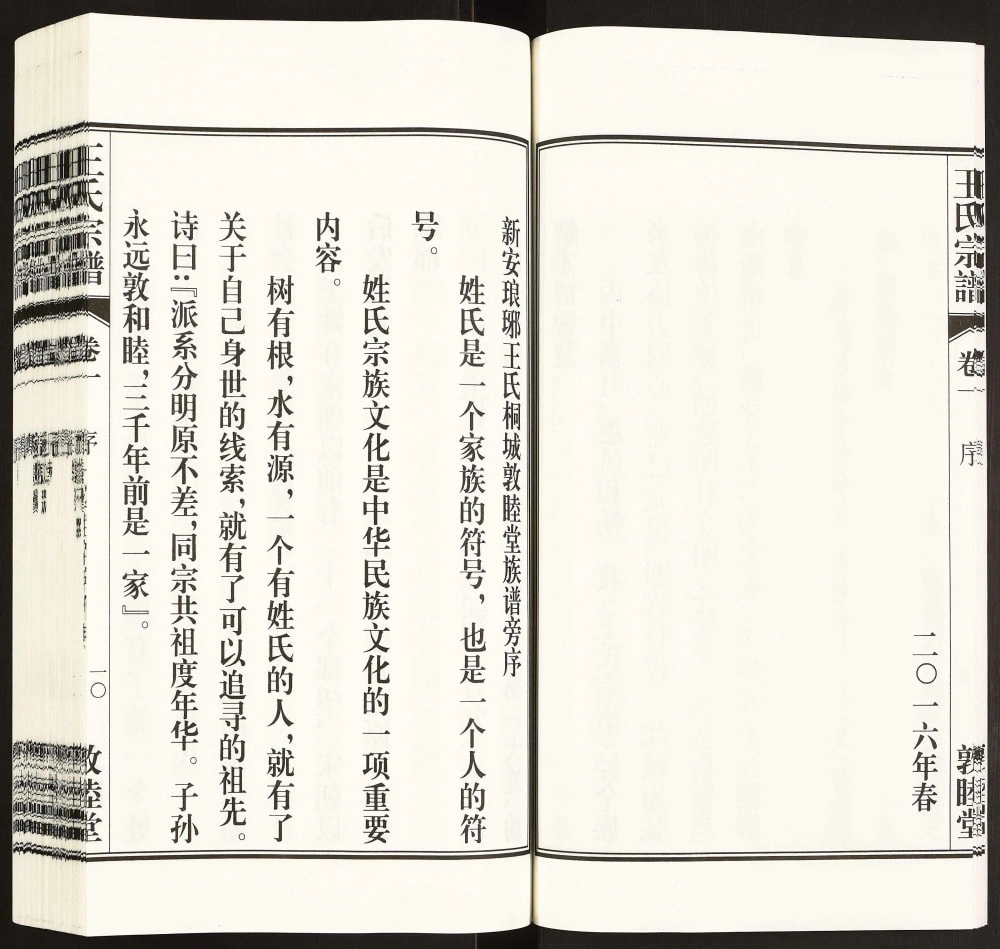 王氏宗譜
卷一
序
敦睦堂
二〇一六年春
新安琅琊王氏桐城敦睦堂族谱旁序
姓氏是一个家族的符号，也是一个人的符
号。
姓氏宗族文化是中华民族文化的一项重要
内容。
树有根，水有源，一个有姓氏的人，就有了
关于自己身世的线索，就有了可以追寻的祖先。
诗曰：『派系分明原不差，同宗共祖度年华。子孙
永远敦和睦，三千年前是一家』。
王氏宗譜
卷一
序
一〇
敦睦堂